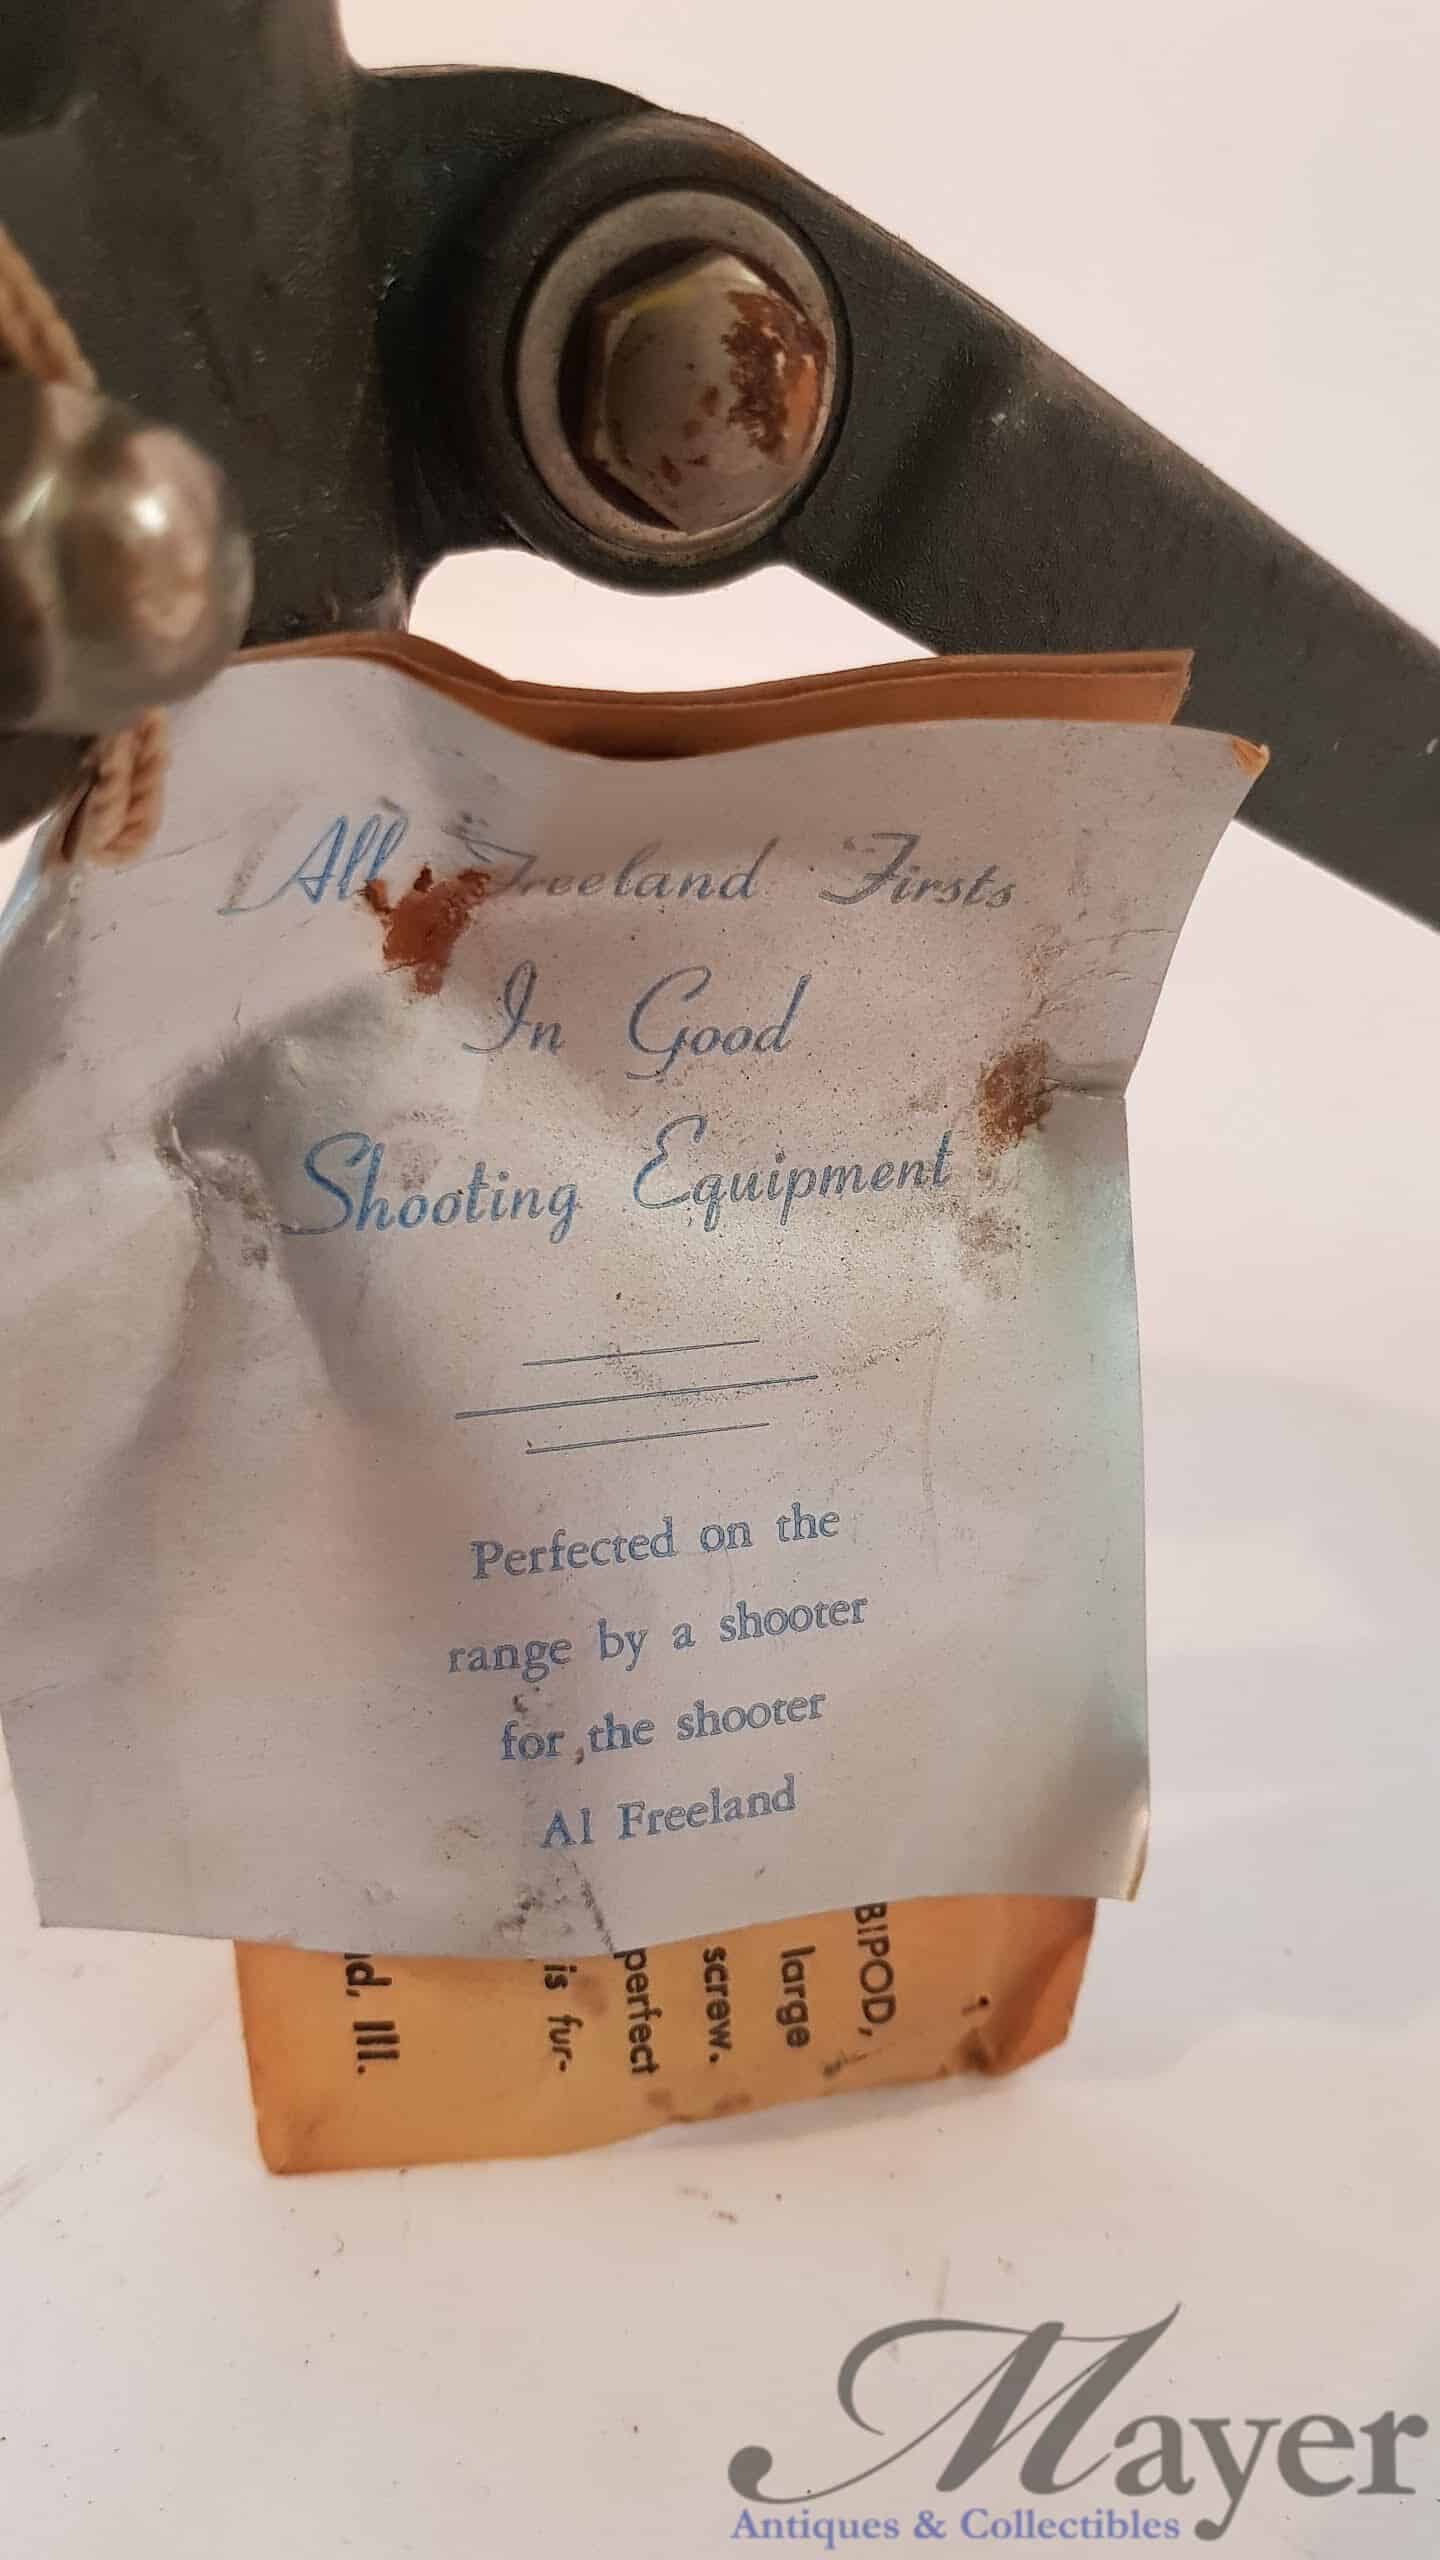 All Freeland Firsts
In Good
Shooting Equipment
Perfected on the
range by a shooter
for the shooter
Al Freeland
BIPOD,
large
screw.
perfect
is fur-
Ill.
Mayer
Antiques & Collectibles